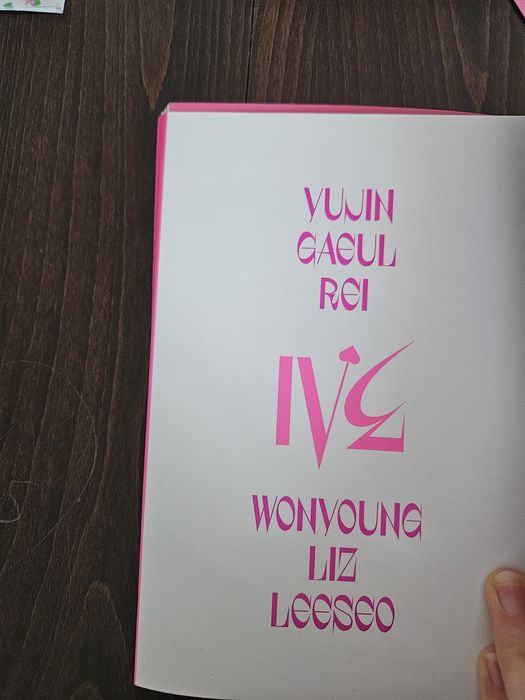 YUJIN
GAEUL
REI
IVE
WONYOUNG
LIZ
LEESEO